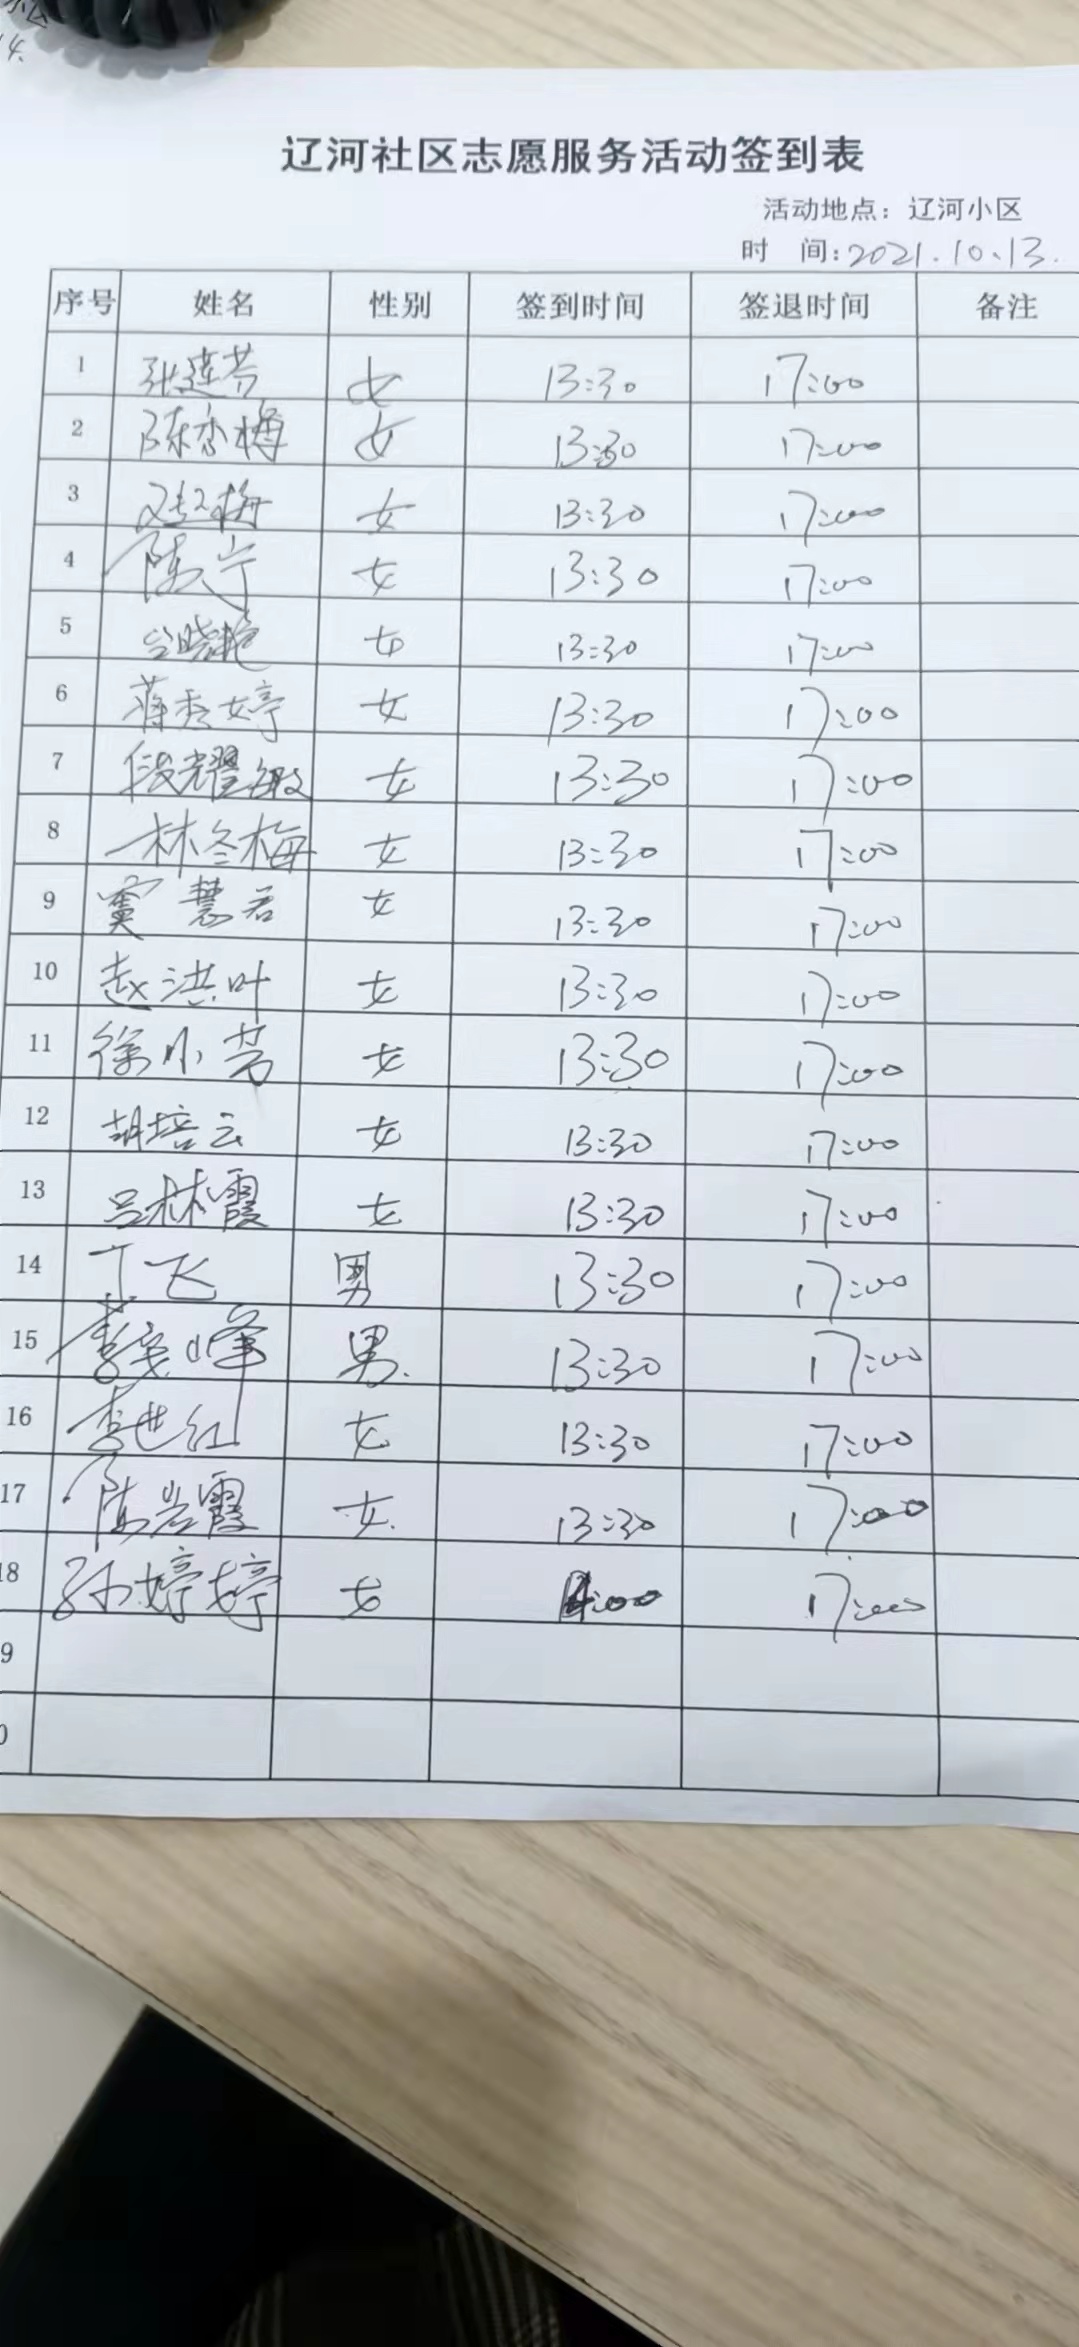 辽河社区志愿服务活动签到表
活动地点：辽河小区
时 间：2021.10.13.
序号 姓名 性别 签到时间 签退时间 备注
1 张莲芳 女 13:30 17:00
2 陈香梅 女 13:30 17:00
3 赵梅 女 13:30 17:00
4 陈宁 女 13:30 17:00
5 晓艳 女 13:30 17:00
6 蒋秀婷 女 13:30 17:00
7 段耀敏 女 13:30 17:00
8 林冬梅 女 13:30 17:00
9 窦慧君 女 13:30 17:00
10 赵洪叶 女 13:30 17:00
11 徐小芳 女 13:30 17:00
12 胡培云 女 13:30 17:00
13 吕林霞 女 13:30 17:00
14 丁飞 男 13:30 17:00
15 李 峰 男. 13:30 17:00
16 李世红 女 13:30 17:00
17 陈岩霞 女. 13:30 17:00
18 孙婷婷 女 14:00 17:00
9
0